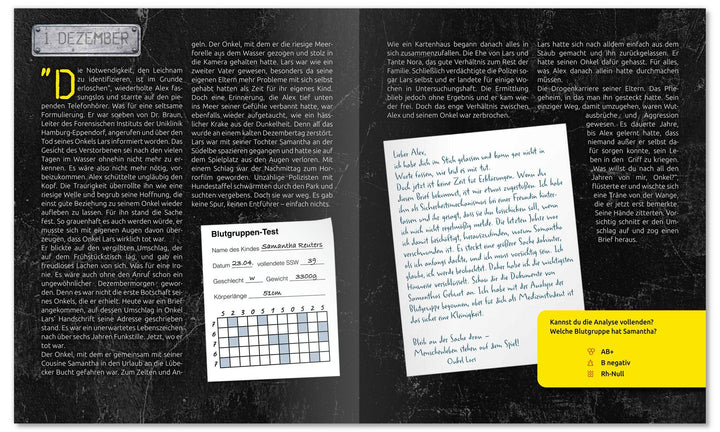 1 DEZEMBER
"Die Notwendigkeit, den Leichnam
zu identifizieren, ist im Grunde
erloschen", wiederholte Alex fas-
sungslos und starrte auf den pie-
penden Telefonhörer. Was für eine seltsame
Formulierung. Er war soeben von Dr. Braun,
Leiter des Forensischen Instituts der Uniklinik
Hamburg-Eppendorf, angerufen und über den
Tod seines Onkels Lars informiert worden. Das
Gesicht des Verstorbenen sei nach den vielen
Tagen im Wasser ohnehin nicht mehr zu er-
kennen. Es wäre also nicht mehr nötig, vor-
beizukommen. Alex schüttelte ungläubig den
Kopf. Die Traurigkeit überrollte ihn wie eine
riesige Welle und begrub seine Hoffnung, die
einst gute Beziehung zu seinem Onkel wieder
aufleben zu lassen. Für ihn stand die Sache
fest. So grauenhaft es auch werden würde, er
musste sich mit eigenen Augen davon über-
zeugen, dass Onkel Lars wirklich tot war.
Er blickte auf den vergilbten Umschlag, der
auf dem Frühstückstisch lag, und gab ein
freudloses Lachen von sich. Was für eine Iro-
nie. Es wäre auch ohne den Anruf schon ein
ungewöhnlicher Dezembermorgen gewor-
den. Denn es war nicht die erste Botschaft sei-
nes Onkels, die er erhielt. Heute war ein Brief
angekommen, auf dessen Umschlag in Onkel
Lars' Handschrift seine Adresse geschrieben
stand. Es war ein unerwartetes Lebenszeichen
nach über sechs Jahren Funkstille. Jetzt, wo er
tot war.
Der Onkel, mit dem er gemeinsam mit seiner
Cousine Samantha in den Urlaub an die Lübe-
cker Bucht gefahren war. Zum Zelten und An-
geln. Der Onkel, mit dem er die riesige Meer-
forelle aus dem Wasser gezogen und stolz in
die Kamera gehalten hatte. Lars war wie ein
zweiter Vater gewesen, besonders da seine
eigenen Eltern mehr Probleme mit sich selbst
gehabt hatten als Zeit für ihr eigenes Kind.
Doch eine Erinnerung, die Alex tief unten
ins Meer seiner Gefühle verbannt hatte, war
ebenfalls wieder aufgetaucht, wie ein häss-
licher Krake aus der Dunkelheit. Denn all das
wurde an einem kalten Dezembertag zerstört.
Lars war mit seiner Tochter Samantha an der
Südelbe spazieren gegangen und hatte sie auf
dem Spielplatz aus den Augen verloren. Mit
einem Schlag war der Nachmittag zum Hor-
rorfilm geworden. Unzählige Polizisten mit
Hundestaffel schwärmten durch den Park und
suchten vergebens. Doch sie war weg. Es gab
keine Spur, keinen Entführer – einfach nichts.
Blutgruppen-Test
Name des Kindes Samantha Reuters
Datum 23.04. vollendete SSW 39
Geschlecht w Gewicht 3300g
Körperlänge 51cm
5 2 3 1 5 0 5 2 5
Wie ein Kartenhaus begann danach alles in
sich zusammenzufallen. Die Ehe von Lars und
Tante Nora, das gute Verhältnis zum Rest der
Familie. Schließlich verdächtigte die Polizei so-
gar Lars selbst und er landete für einige Wo-
chen in Untersuchungshaft. Die Ermittlung
blieb jedoch ohne Ergebnis und er kam wie-
der frei. Doch das enge Verhältnis zwischen
Alex und seinem Onkel war zerbrochen.
Lars hatte sich nach alldem einfach aus dem
Staub gemacht und ihn zurückgelassen. Er
hatte seinen Onkel dafür gehasst. Für alles,
was Alex danach allein hatte durchmachen
müssen.
Die Drogenkarriere seiner Eltern. Das Pfle-
geheim, in das man ihn gesteckt hatte. Sein
einziger Weg, damit umzugehen, waren Wut-
ausbrüche und Aggression
gewesen. Es dauerte Jahre,
bis Alex gelernt hatte, dass
niemand außer er selbst da-
für sorgen konnte, sein Le-
ben in den Griff zu kriegen.
„Was willst du nach all den
Jahren von mir, Onkel?",
flüsterte er und wischte sich
eine Träne von der Wange,
die er jetzt erst bemerkte.
Seine Hände zitterten. Vor-
sichtig schnitt er den Um-
schlag auf und zog einen
Brief heraus.
Lieber Alex,
ich habe dich im Stich gelassen und kann gar nicht in
Worte fassen, wie leid es mir tut.
Doch jetzt ist keine Zeit für Erklärungen. Wenn du
diesen Brief bekommst, ist mir etwas zugestoßen. Ich habe
ihn als Sicherheitsmechanismus bei einer Freundin hinter-
lassen und ihr gesagt, dass sie ihn losschicken soll, wenn
ich mich nicht regelmäßig melde. Die letzten Jahre war
ich damit beschäftigt, herauszufinden, warum Samantha
verschwunden ist. Es steckt eine größere Sache dahinter,
als ich anfangs dachte, und ich muss vorsichtig sein. Ich
glaube, ich werde beobachtet. Daher habe ich die wichtigsten
Hinweise verschlüsselt. Sieh dir die Dokumente von
Samanthas Geburt an. Ich habe mit der Analyse der
Blutgruppe begonnen, aber für dich als Medizinstudent ist
das sicher eine Kleinigkeit.
Bleib an der Sache dran –
Menschenleben stehen auf dem Spiel!
Onkel Lars
Kannst du die Analyse vollenden?
Welche Blutgruppe hat Samantha?
AB+
B negativ
Rh-Null